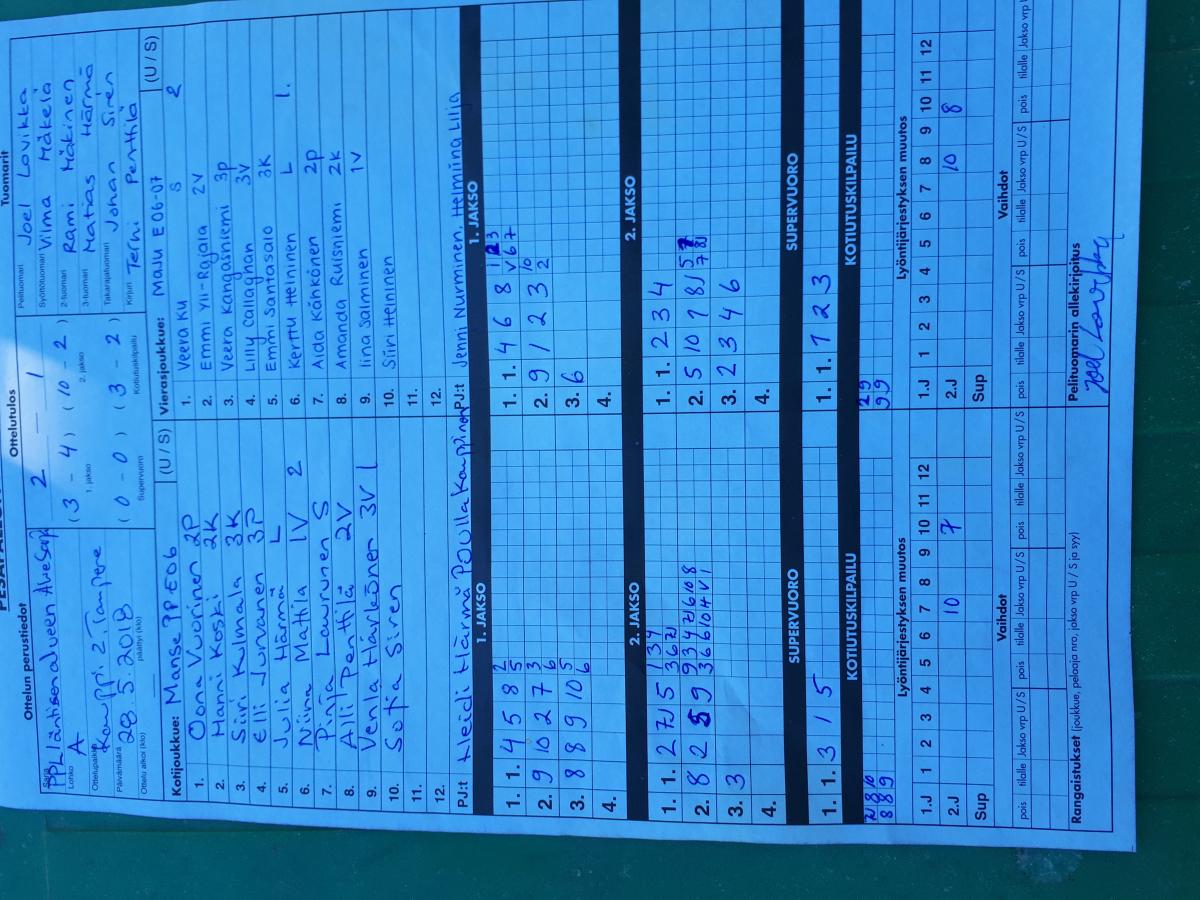 PESÄPALLO
Ottelun perustiedot
Ottelutulos
Tuomarit
Sarja
PPL läntisen alueen
Lohko A
Ottelupaikka Kauppi 2, Tampere
Päivämäärä 28.5.2018
Ottelu alkoi (klo)
päättyi (klo)
2 — 1
(3 - 4) (10 - 2)
1. jakso
2. jakso
(0 - 0) (3 - 2)
Supervuoro
Kotiutuskilpailu
Pelituomari Joel Lovikka
Syöttötuomari Vilma Mäkelä
2-tuomari Rami Mäkinen
3-tuomari Matias Härmä
Takarajatuomari Johan Siren
Kirjuri Terhi Penttilä
Kotijoukkue: Manse PP E06 (U / S)
1. Oona Vuorinen 2P
2. Hanni Koski 2K
3. Siiri Kulmala 3K
4. Elli Jurvanen 3P
5. Julia Härmä L
6. Niina Mattila 1V 2
7. Pinja Laurunen S
8. Alli Penttilä 2V
9. Venla Härkönen 3V 1
10. Sofia Siren
11.
12.
PJ:t Heidi Härmä Poulla Kauppinen
Vierasjoukkue: Malu E 06-07 (U / S)
1. Veera Ku S 2
2. Emmi Yli-Rajala 2V
3. Veera Kangasniemi 3P
4. Lilly Callaghan 3V
5. Emmi Santasalo 3K
6. Kerttu Heininen L 1.
7. Aida Kähkönen 2p
8. Amanda Ruisniemi 2K
9. Iina Salminen 1V
10. Siiri Heininen
11.
12.
PJ:t Jenni Nurminen, Helmiina Lilja
1. JAKSO
1. 1. 4 5 8 2 5
2. 9 10 2 7 3 6
3. 8 8 9 10 5 6
4.
1. JAKSO
1. 1. 4 6 8
2. 9 1 2 3 10 2
3. 6
4.
2. JAKSO
1. 1. 2
2. 8 2 5 9
3. 3
4.
2. JAKSO
1. 1. 2 3 4
2. 5 10 1 8
3. 2 3 4 6
4.
SUPERVUORO
1. 1. 3 1 5
SUPERVUORO
1. 1. 1 2 3
KOTIUTUSKILPAILU
8 8 9
KOTIUTUSKILPAILU
2 9
9 9
Lyöntijärjestyksen muutos
1.J 1 2 3 4 5 6 7 8 9 10 11 12
2.J 10 7
Sup
Lyöntijärjestyksen muutos
1.J 1 2 3 4 5 6 7 8 9 10 11 12
2.J 10 8
Sup
Vaihdot
pois tilalle Jakso vrp U / S pois tilalle Jakso vrp U / S pois tilalle Jakso vrp U / S
Vaihdot
pois tilalle Jakso vrp U / S pois tilalle Jakso vrp U / S pois tilalle Jakso vrp
Rangaistukset (joukkue, pelaaja nro, jakso vrp U / S ja syy)
Pelituomarin allekirjoitus